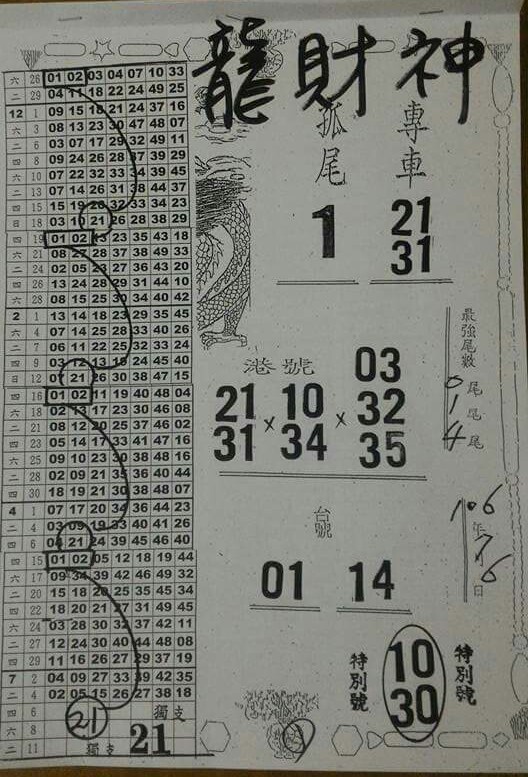 龍財神
六 26 01 02 03 04 07 10 33
二 29 04 11 18 22 24 49 25
12 1 09 15 18 21 24 37 16
六 3 08 13 23 30 47 48 07
二 6 03 07 17 29 32 49 11
四 8 09 24 26 28 37 39 29
六 10 07 22 32 33 34 39 45
二 13 07 14 26 31 38 44 37
四 15 15 19 20 32 33 34 23
日 18 03 19 21 26 28 38 29
四 19 01 02 13 23 35 43 18
六 21 08 27 28 37 38 49 33
二 24 02 05 23 27 36 43 20
四 26 13 24 28 29 31 44 10
六 28 08 15 25 30 34 40 42
2 1 13 14 18 23 29 35 45
六 4 07 14 25 28 33 40 26
二 7 06 11 22 25 32 33 24
四 9 03 12 13 18 24 45 40
日 12 07 21 26 30 38 47 15
四 16 01 02 11 19 40 48 04
六 18 02 13 17 23 30 46 08
二 21 08 12 20 25 37 46 02
四 23 05 14 17 33 41 47 16
六 25 09 10 23 30 38 48 16
二 28 02 09 21 35 36 40 44
四 30 18 19 21 30 38 48 07
4 1 07 17 20 34 36 44 23
二 4 03 09 19 33 40 41 26
四 6 04 21 24 39 45 46 40
四 15 01 02 05 12 18 19 44
六 17 09 34 39 42 46 49 32
二 20 15 18 26 25 35 45 34
四 22 18 20 21 27 31 49 45
六 24 03 28 30 32 37 42 11
二 27 12 24 30 40 44 48 08
四 29 11 16 26 27 29 37 19
7 2 04 09 27 33 39 42 35
二 4 02 05 15 26 27 38 18
四 6 21 獨支
六 8
二 11 獨支 21
孤尾
1
專車
21
31
港號
21 31 × 10 34 × 03 32 35
最強尾數
0尾
1尾
4尾
台號
01 14
106年7月6日
特別號
10
30
特別號